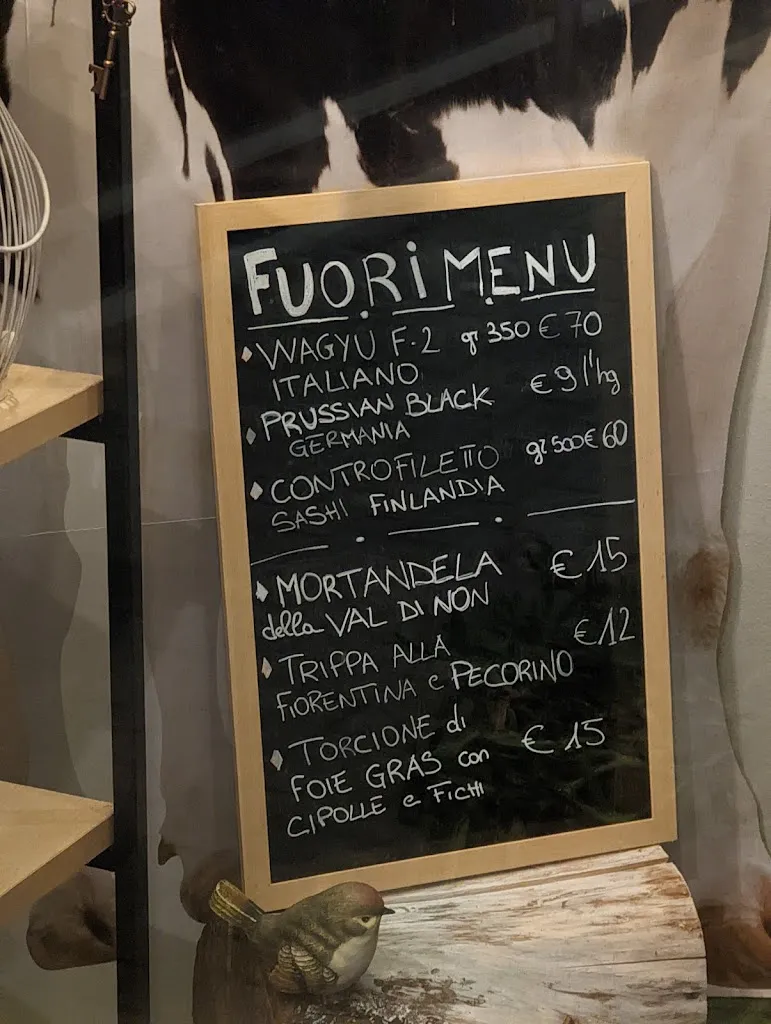 FUORI MENU
WAGYU F-2 gr 350 € 70
ITALIANO
PRUSSIAN BLACK € 9 l'hg
GERMANIA
CONTROFILETTO gr 500 € 60
SASHI FINLANDIA
MORTANDELA € 15
della VAL DI NON
TRIPPA ALLA € 12
FIORENTINA e PECORINO
TORCIONE di € 15
FOIE GRAS con
CIPOLLE e FICHI